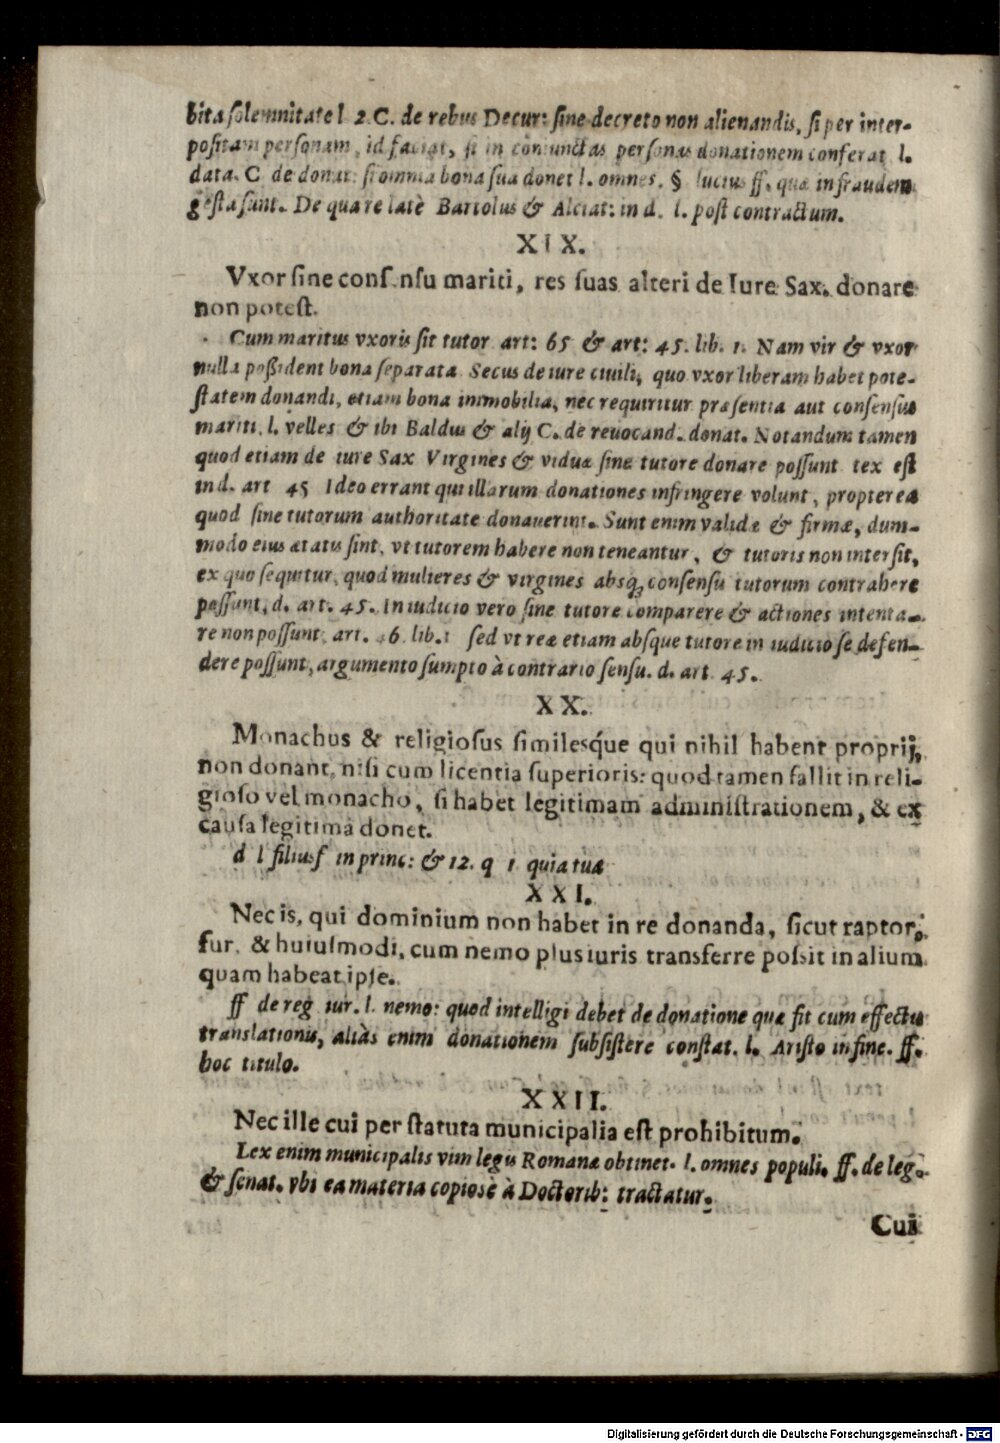 bita ſolemnitate l 2 C. de rebus Decur: ſine decreto non alienandis, ſi per inter-
poſitam perſonam, id faciat, ſi in coniunctas perſonas donationem conferat l.
data. C de donat: ſi omnia bona ſua donet l. omnes. § lucius ff. quæ in fraudem
geſta ſunt. De qua re latè Bartolus & Alciat: in d. l. poſt contractum.
XIX.
Vxor ſine conſenſu mariti, res ſuas alteri de Iure Sax. donare
non poteſt.
Cum maritus vxoris ſit tutor art: 65 & art: 45. lib. 1. Nam vir & vxor
nulla poßident bona ſeparata Secus de iure ciuili, quo vxor liberam habet pote-
ſtatem donandi, etiam bona immobilia, nec requiritur præſentia aut conſenſus
mariti. l. velles & ibi Baldus & alij C. de reuocand. donat. Notandum tamen
quod etiam de iure Sax Virgines & viduæ ſine tutore donare poſſunt tex eſt
in d. art 45 Ideo errant qui illarum donationes infringere volunt, propterea
quod ſine tutorum authoritate donauerint. Sunt enim validæ & firmæ, dum-
modo eius ætatis ſint, vt tutorem habere non teneantur, & tutoris non interſit,
ex quo ſequitur, quod mulieres & virgines absq; conſenſu tutorum contrahere
poſſunt, d. art. 45. In iudicio vero ſine tutore comparere & actiones intenta-
re non poſſunt, art. 46. lib. 1 ſed vt reæ etiam abſque tutore in iudicio ſe defen-
dere poſſunt, argumento ſumpto à contrario ſenſu. d. art 45.
XX.
Monachus & religioſus ſimilesq́ue qui nihil habent proprij,
non donant, niſi cum licentia ſuperioris: quod tamen fallit in reli-
gioſo vel monacho, ſi habet legitimam adminiſtrationem, & ex
cauſa legitima donet.
d l filiusf in princ: & 12. q 1 quia tua
XXI.
Nec is, qui dominium non habet in re donanda, ſicut raptor,
fur. & huiuſmodi, cum nemo plus iuris transferre poſsit in alium
quam habeat ipſe.
ff de reg iur. l. nemo: quod intelligi debet de donatione quæ fit cum effectu
translationis, aliàs enim donationem ſubſiſtere conſtat. l. Ariſto in fine. ff.
hoc titulo.
XXII.
Nec ille cui per ſtatuta municipalia eſt prohibitum.
Lex enim municipalis vim legis Romanæ obtinet. l. omnes populi. ff. de leg.
& ſenat. vbi ea materia copiosè à Doctorib: tractatur.
Cui
Digitalisierung gefördert durch die Deutsche Forschungsgemeinschaft - DFG